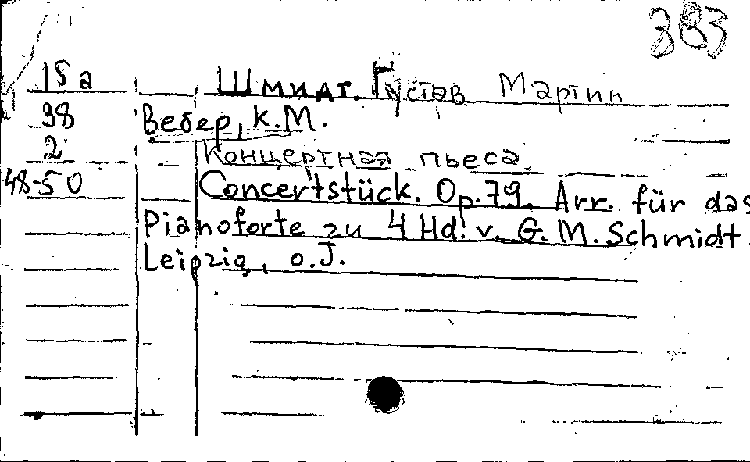 383
15а Шмидт. Густав Мартин
98 Вебер, К.М.
2 Концертная пьеса
48-50 Concertstück. Op. 79. Arr. für das
Pianoforte zu 4 Hd. v. G. M. Schmidt.
Leipzig, o.J.